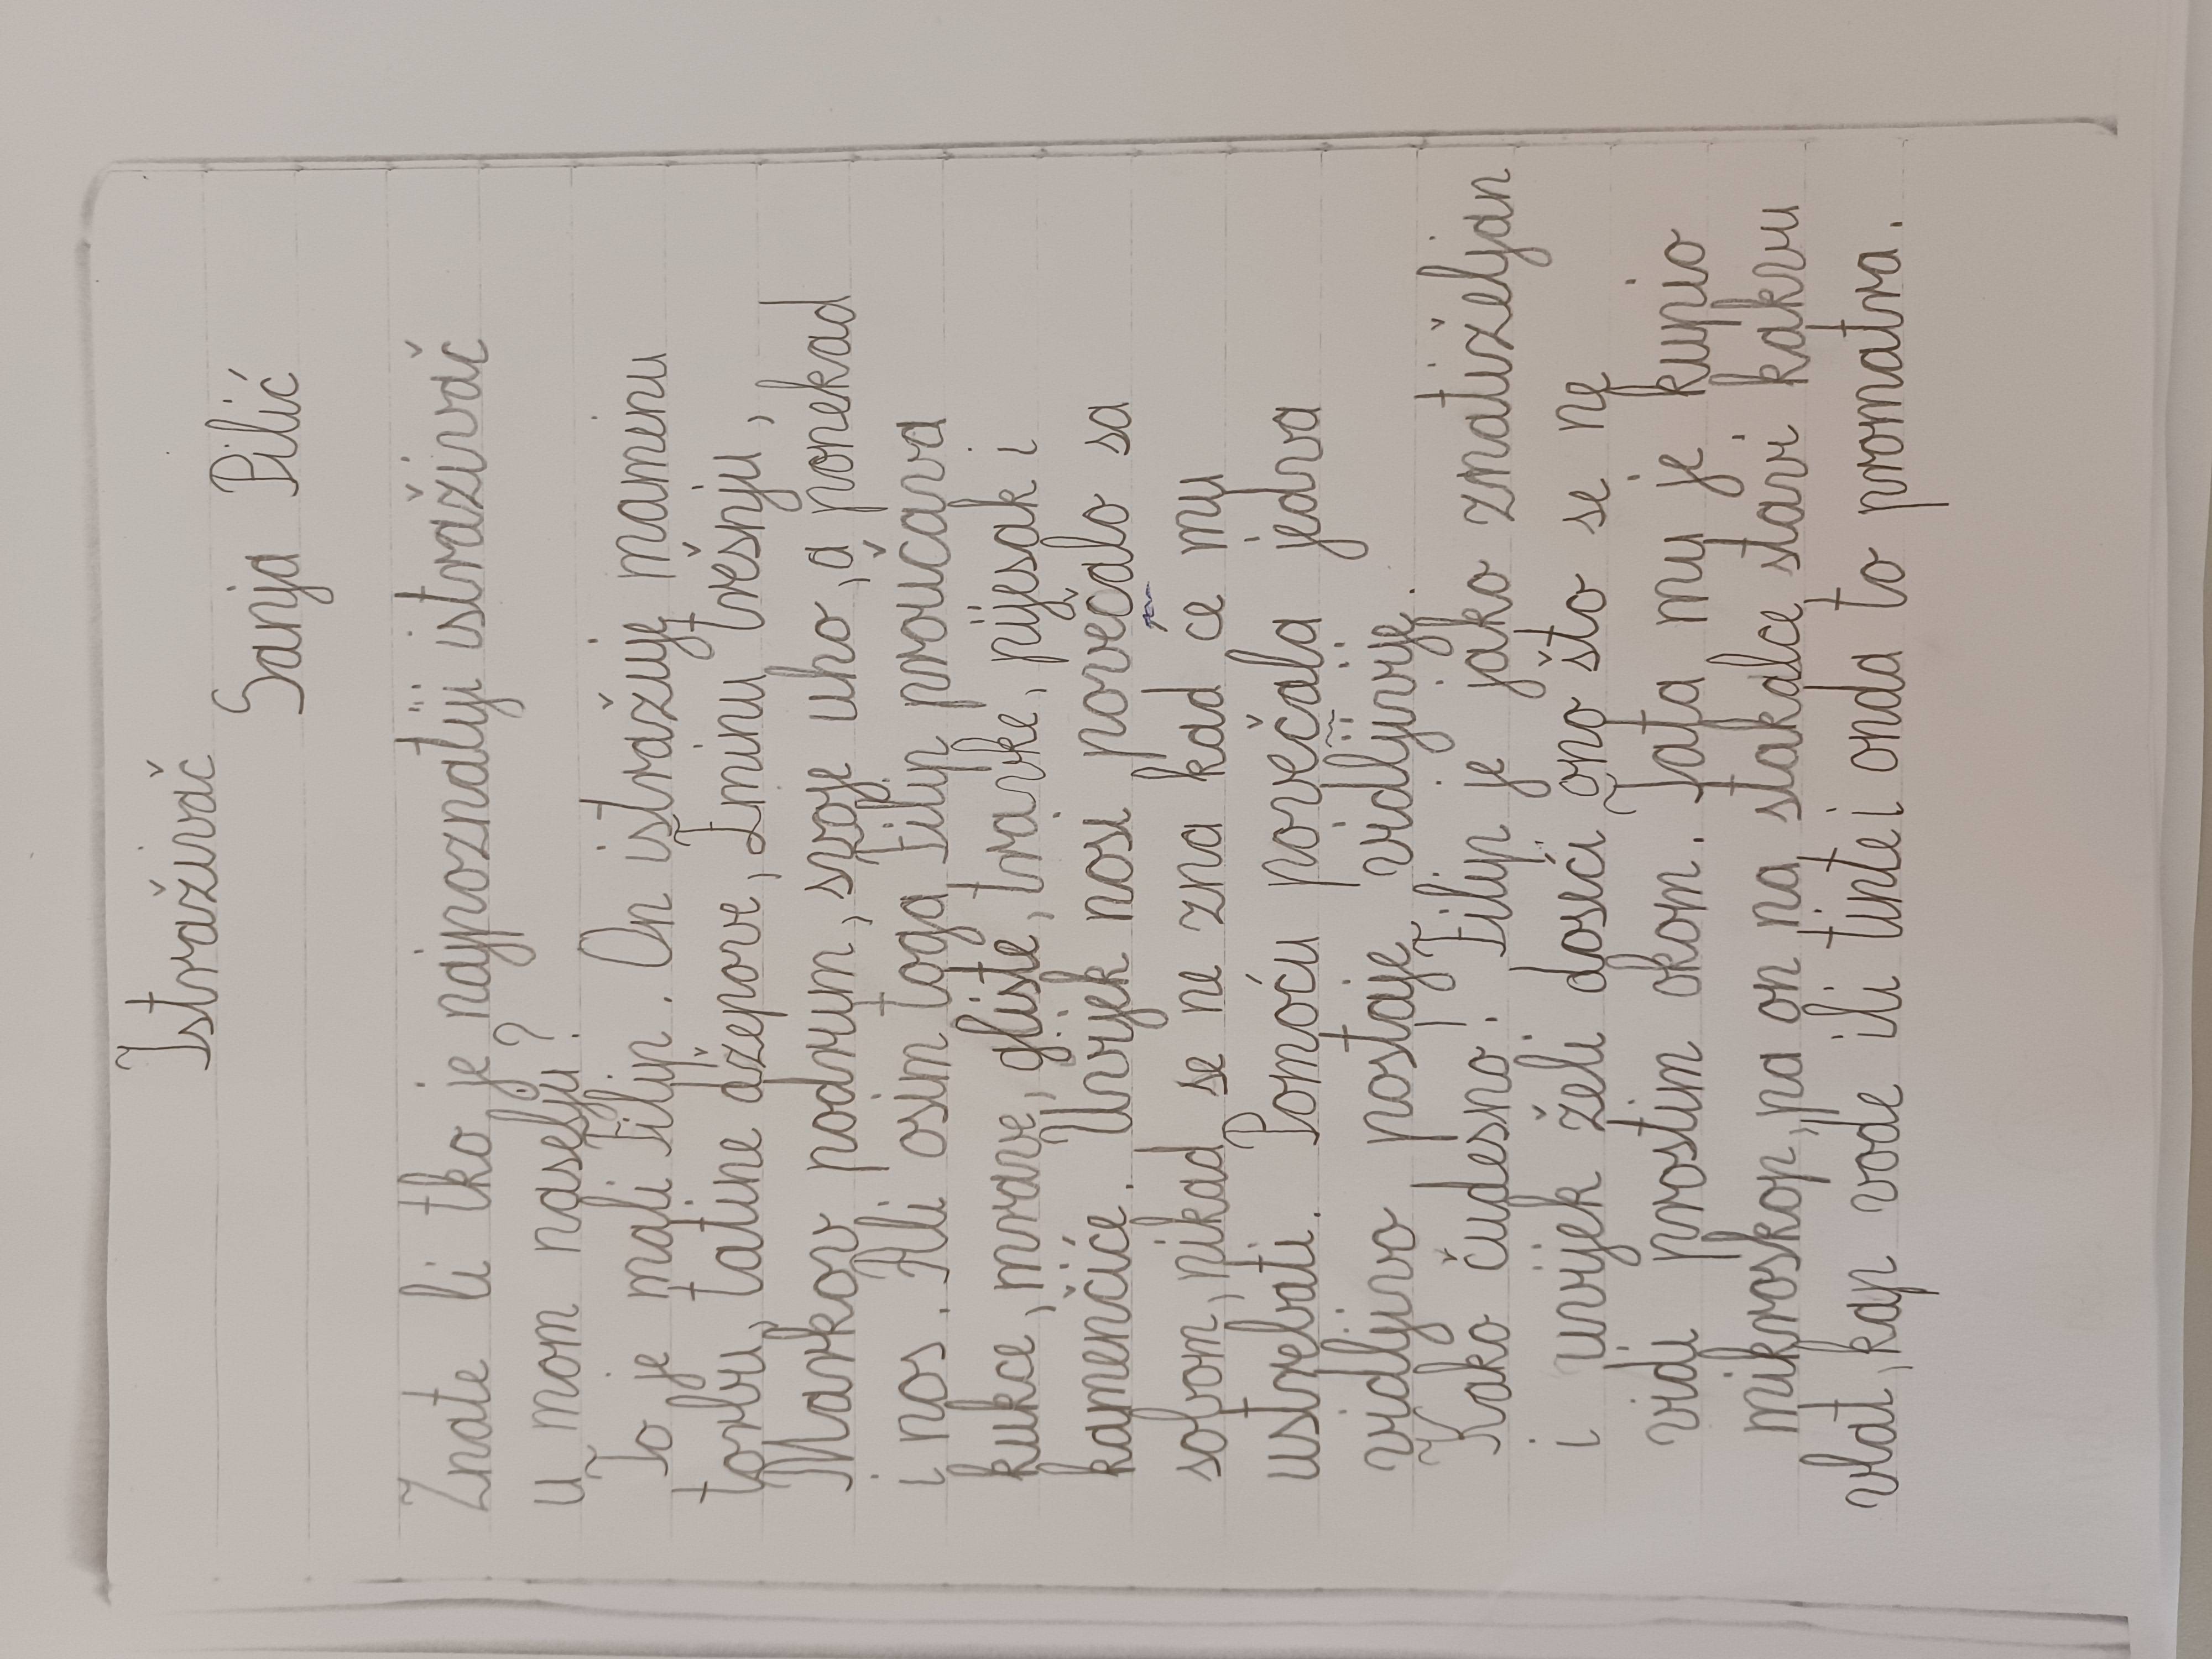 Istraživač
Sanja Pilić
Znate li tko je najpoznatiji istraživač
u mom naselju?
To je mali Filip. On istražuje maminu
torbu, tatine džepove, Eminu trešnju,
Markov podrum, svoje uho, a ponekad
i nos. Ali osim toga Filip proučava
kukce, mrave, gliste, travke, pijesak i
kamenčiće. Uvijek nosi povečalo sa
sobom, nikad se ne zna kad ce mu
ustrebati. Pomoću povečala jedva
vidljivo postaje vidljivije.
Kako čudesno! Filip je jako znatiželjan
i uvijek želi doseći ono što se ne
vidi prostim okom. Tata mu je kupio
mikroskop, pa on na stakalce stavi kakvu
vlat, kap vode ili tinte i onda to promatra.